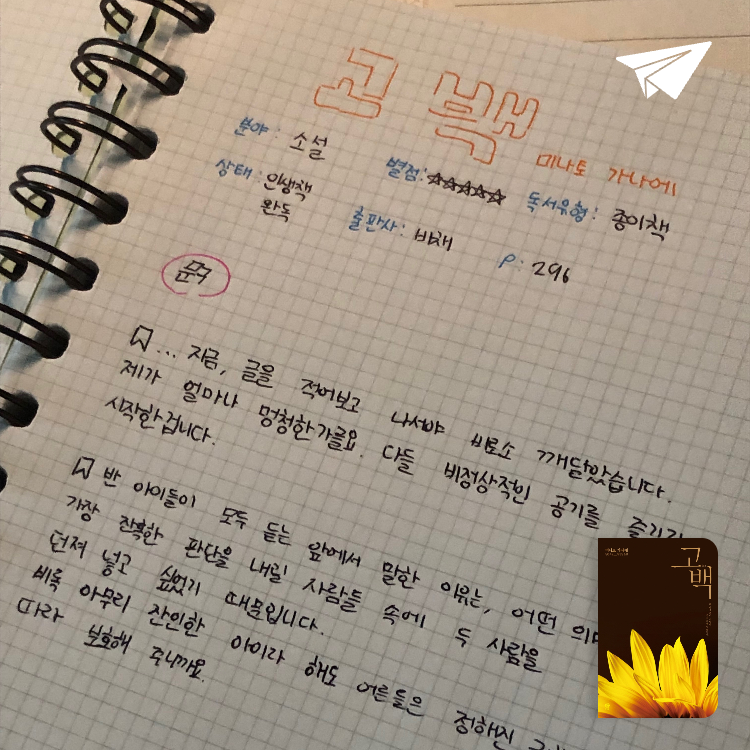 고백
미나토 가나에
분야: 소설
별점: ☆☆☆☆☆
독서유형: 종이책
상태: 인생책
완독
출판사: 비채
P: 296
문구
... 지금, 글을 적어보고 나서야 비로소 깨달았습니다.
제가 얼마나 멍청한가를요. 다들 비정상적인 공기를 즐기기
시작한 겁니다.
반 아이들이 모두 듣는 앞에서 말한 이유는, 어떤
가장 잔혹한 판단을 내릴 사람들 속에 두 사람을
던져 넣고 싶었기 때문입니다.
비록 아무리 잔인한 아이라 해도 어른들은 정해진
따라 보호해 주니까요.
고백